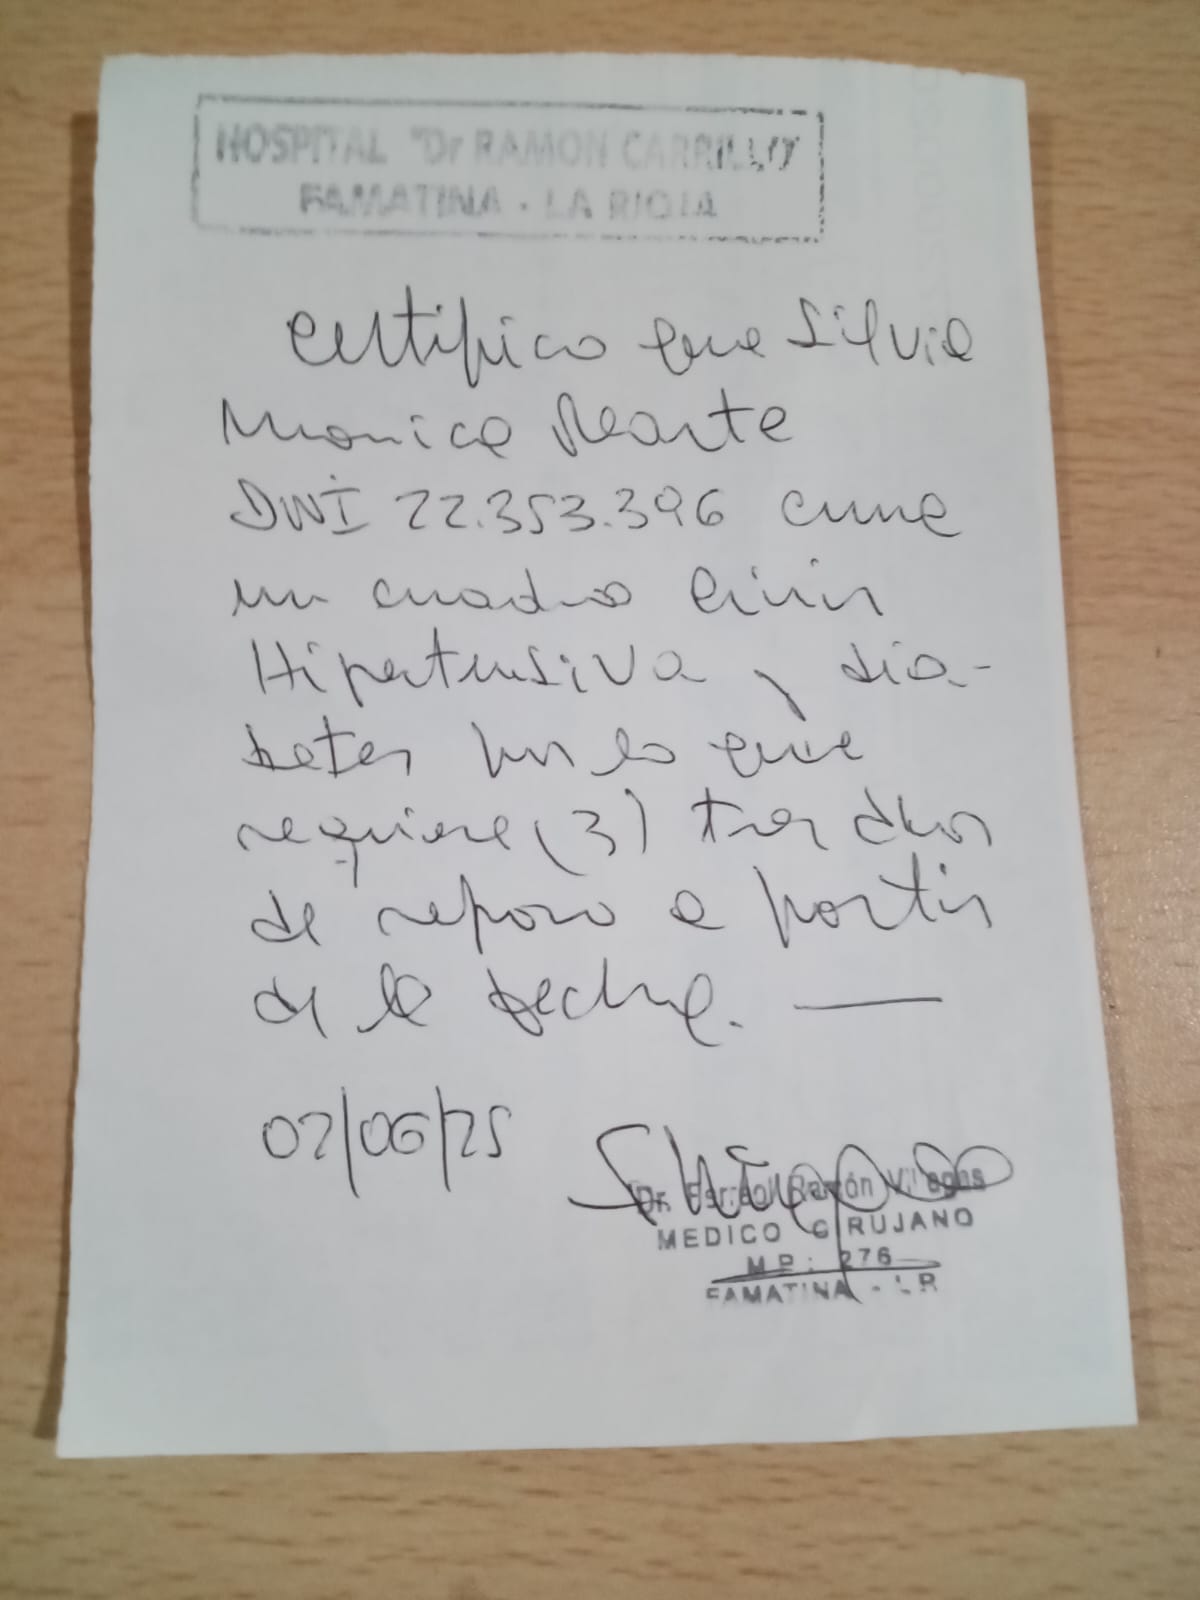 HOSPITAL "Dr RAMON CARRILLO"
FAMATINA - LA RIOJA
Certifico que Silvia
Monica Rearte
DNI 22.353.396 cursa
un cuadro Crisis
Hipertensiva y dia-
betes por lo que
requiere (3) tres dias
de reposo a partir
de la fecha. —
02/06/25
Dr. Ramón Villegas
MEDICO CIRUJANO
MP: 276
FAMATINA - LR